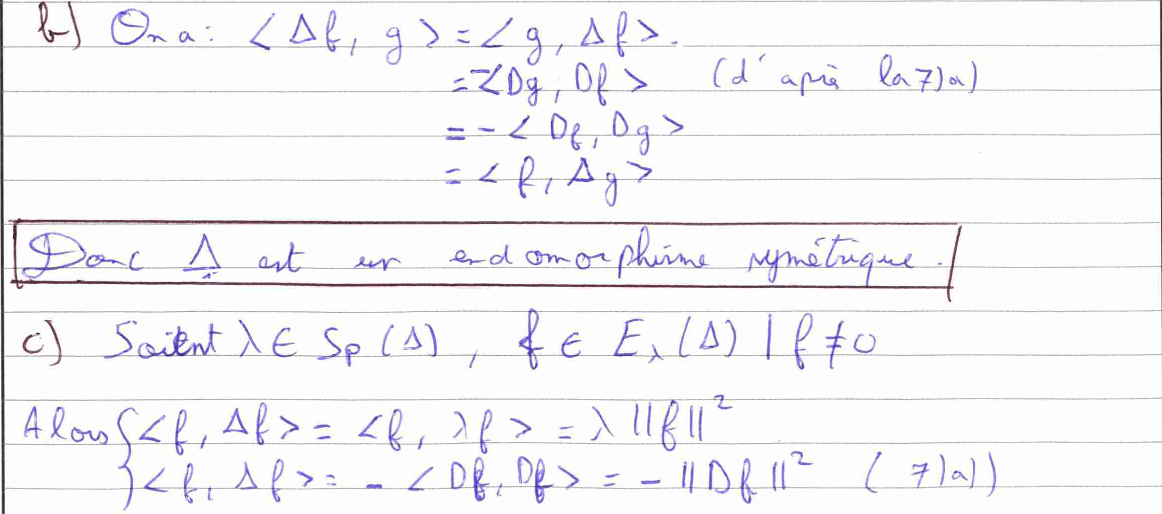 b) On a: < Δf, g > = < g, Δf >.
= -< Dg, Df > (d'après la 7)a)
= - < Df, Dg >
= < f, Δg >
Donc Δ est un endomorphisme symétrique.
c) Soient λ ∈ Sp (Δ), f ∈ E_λ (Δ) | f ≠ 0
Alors { < f, Δf > = < f, λf > = λ ||f||²
< f, Δf > = - < Df, Df > = - ||Df||² ( 7)a))